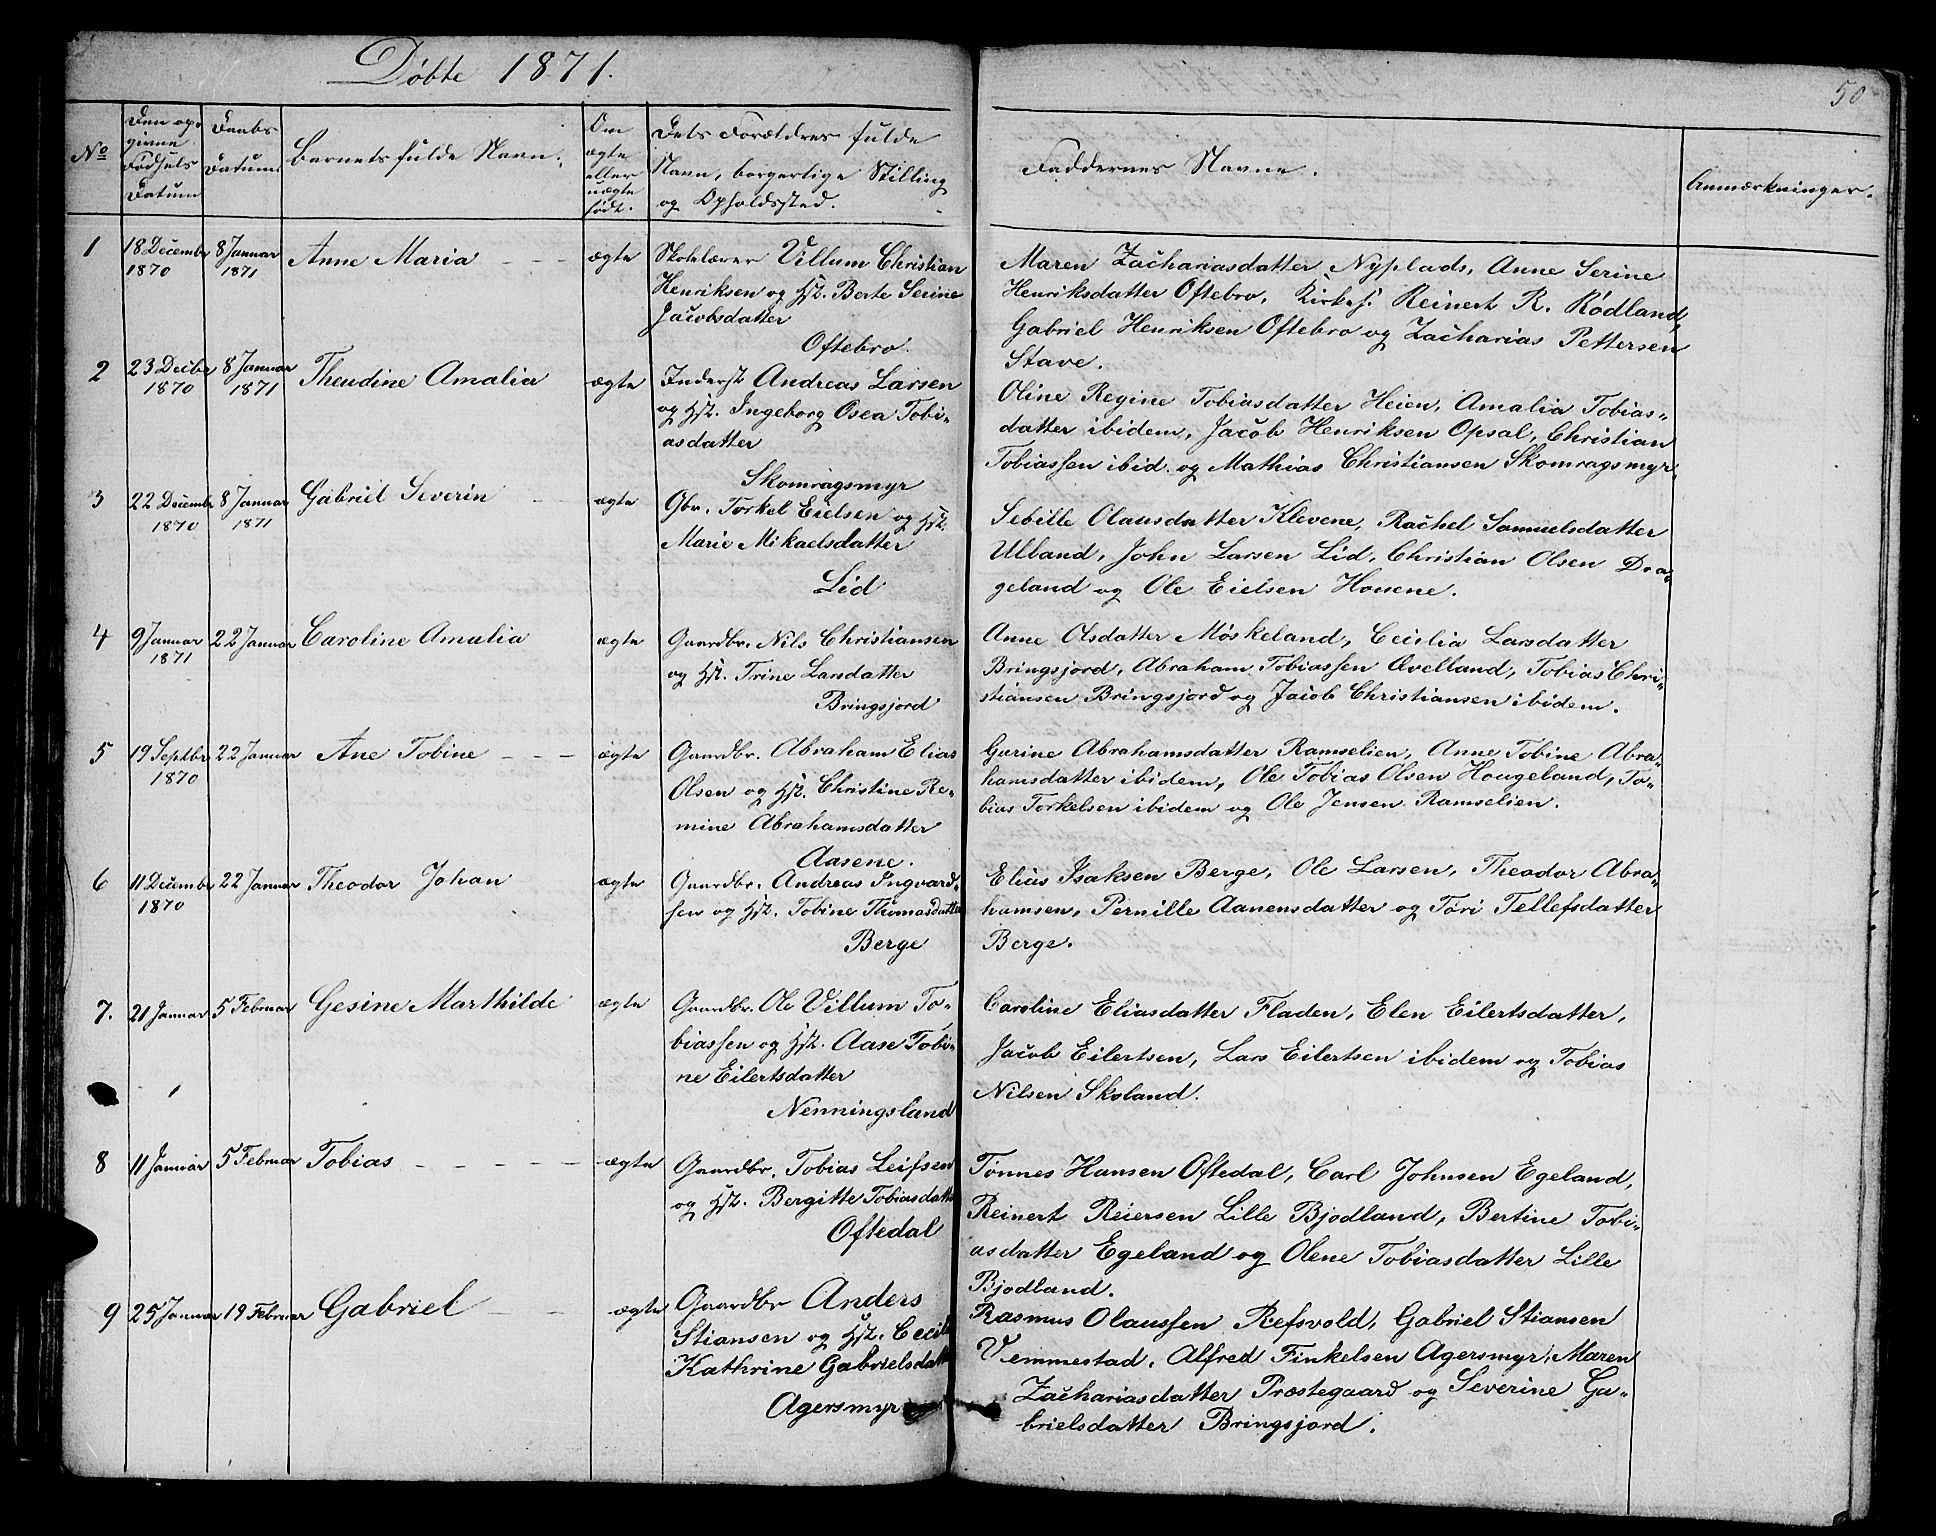 Døbte 1871.
50
No
Den op-
givne
Fødsels
Datum
Daabs
Datum
Barnets fulde Navn.
Om
ægte
eller
uægte
født.
Dets Forældres fulde
Navn, borgerlige Stilling
og Opholdssted.
Faddernes Navne.
Anmærkninger.
1
18 Decembr
1870
8 Januar
1871
Anne Maria
ægte
Skolelærer Villum Christian
Henriksen og Hst. Berte Serine
Jacobsdatter
Oftebro.
Maren Zachariasdatter Nyplads, Anne Serine
Henriksdatter Oftebro, Kirkes. Reinert R. Rødland,
Gabriel Henriksen Oftebro og Zacharias Pettersen
Stave.
2
23 Decbr
1870
8 Januar
1871
Theudine Amalia
ægte
Inderst Andreas Larsen
og Hst. Ingeborg Osea Tobi-
asdatter
Skomragsmyr
Oline Regine Tobiasdatter Heien, Amalia Tobias-
datter ibidem, Jacob Henriksen Opsal, Christian
Tobiassen ibid. og Mathias Christiansen Skomragsmyr.
3
22 Decembr
1870
8 Januar
1871
Gabriel Severin
ægte
Gbr. Torkel Eielsen og Hst.
Marie Mikaelsdatter
Lid
Sebille Olausdatter Klevene, Rachel Samuelsdatter
Ulland, John Larsen Lid, Christian Olsen Dra-
geland og Ole Eielsen Houene.
4
9 Januar
1871
22 Januar
Caroline Amalia
ægte
Gaardbr. Nils Christiansen
og Hst. Trine Larsdatter
Bringsjord
Anne Olsdatter Møskeland, Cecilia Larsdatter
Bringsjord, Abraham Tobiassen Øvelland, Tobias Chri-
stiansen Bringsjord og Jacob Christiansen ibidem.
5
19 Septbr
1870
22 Januar
Ane Tobine
ægte
Gaardbr. Abraham Elias
Olsen og Hst. Christine Re-
mine Abrahamsdatter
Aasene.
Gurine Abrahamsdatter Ramselien, Anne Tobine Abra-
hamsdatter ibidem, Ole Tobias Olsen Hougeland, To-
bias Torkelsen ibidem og Ole Jensen Ramselien.
6
11 Decembr
1870
22 Januar
Theodor Johan
ægte
Gaardbr. Andreas Ingvard-
sen og Hst. Tobine Thomasdatter
Berge
Elias Isaksen Berge, Ole Larsen, Theodor Abra-
hamsen, Pernille Aanensdatter og Tori Tellefsdatter
Berge.
7.
21 Januar
5 Februar
Gesine Marthilde
ægte
Gaardbr. Ole Villum To-
biassen og Hst. Aase Tobi-
ne Eilertsdatter
Nenningsland
Caroline Eliasdatter Fladen, Elen Eilertsdatter,
Jacob Eilertsen, Lars Eilertsen ibidem og Tobias
Nilsen Skoland.
8
11 Januar
5 Februar
Tobias
ægte
Gaardbr. Tobias Leifsen
og Hst. Bergitte Tobiasdatt
Oftedal
Tønnes Hansen Oftedal, Carl Johnsen Egeland,
Reinert Reiersen Lille Bjodland, Bertine Tobi-
asdatter Egeland og Olene Tobiasdatter Lille
Bjodland.
9
25 Januar
19 Februar
Gabriel
ægte
Gaardbr Anders
Stiansen og Hst. Cecil
Kathrine Gabrielsdatt
Agersmyr
Rasmus Olaussen Refsvold, Gabriel Stiansen
Vemmestad, Alfred Finkelsen Agersmyr, Maren
Zachariasdatter Præstegaard og Severine Ga-
brielsdatter Bringsjord.